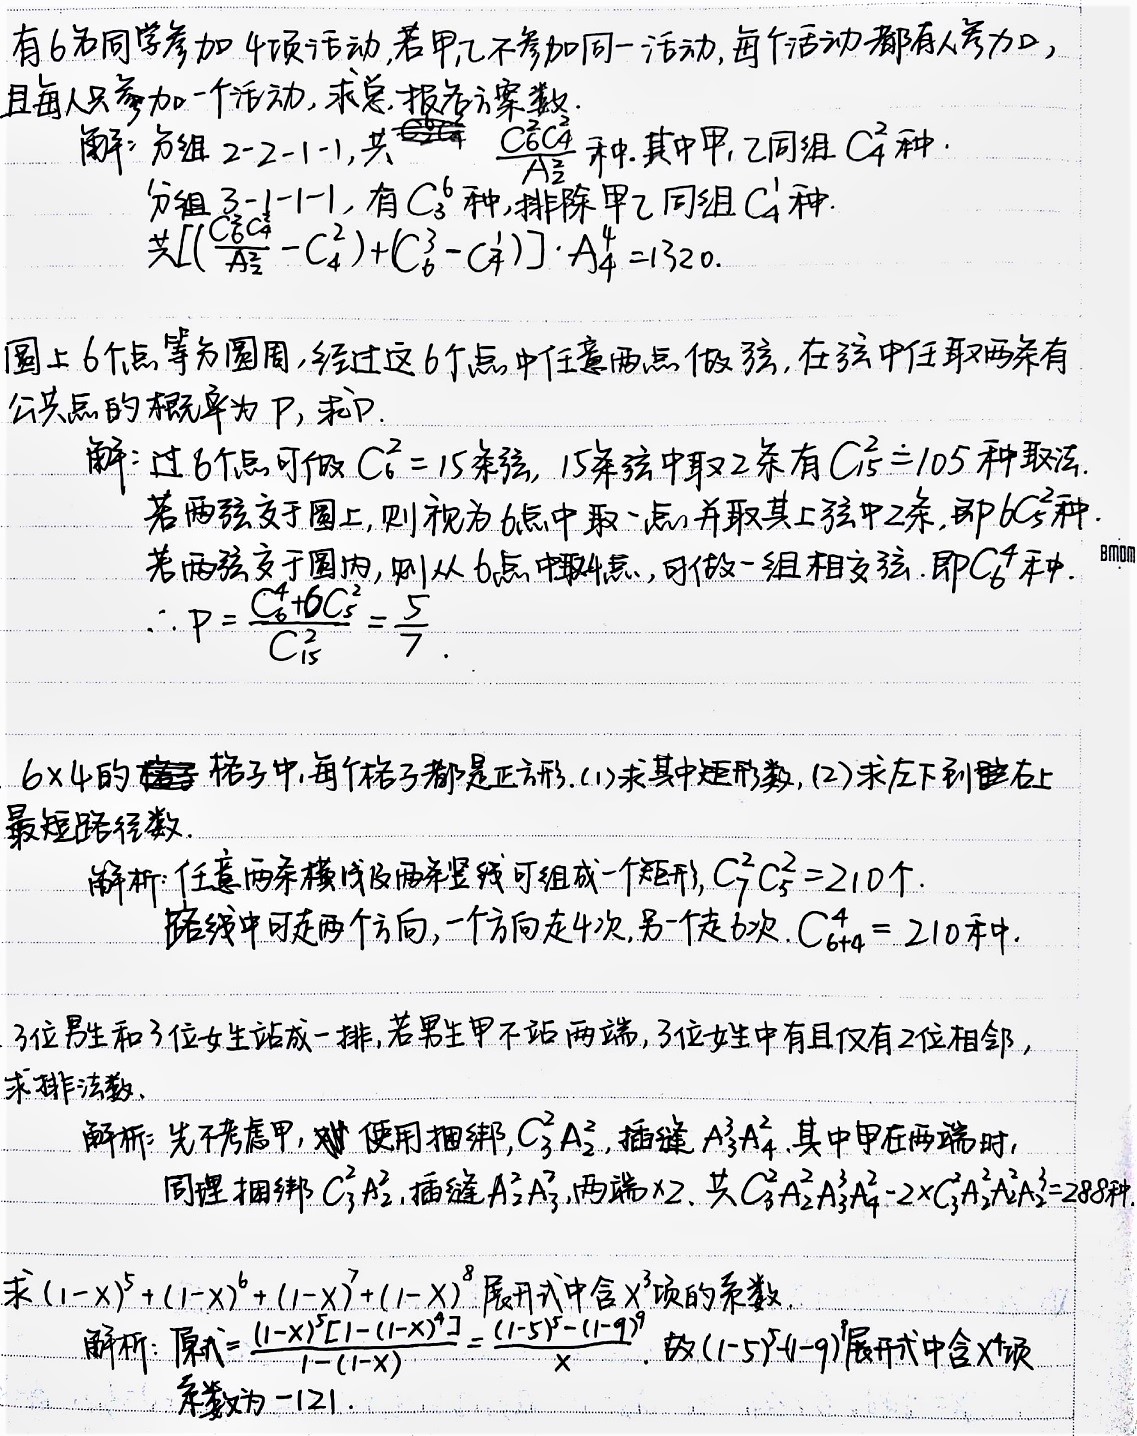 有6名同学参加4项活动,若甲,乙不参加同一活动,每个活动都有人参加,
且每人只参加一个活动,求总报名方案数.
解:分组2-2-1-1,共 C₆²C₄²/A₂² 种.其中甲,乙同组 C₄² 种.
分组3-1-1-1,有 C₃⁶ 种,排除甲乙同组 C₄¹ 种.
共[(C₆²C₄²/A₂² - C₄²)+(C₆³-C₄¹)]·A₄⁴=1320.
圆上6个点等分圆周,经过这6个点中任意两点做弦,在弦中任取两条有
公共点的概率为P,求P.
解:过6个点可做 C₆²=15条弦, 15条弦中取2条有 C₁₅²=105种取法.
若两弦交于圆上,则视为6点中取一点,并取其上弦中2条,即6C₅²种.
若两弦交于圆内,则从6点中取4点,可做一组相交弦.即C₆⁴种.
BMDM
∴P=(C₆⁴+6C₅²)/C₁₅²=5/7.
6×4的格子中,每个格子都是正方形.(1)求其中矩形数,(2)求左下到右上
最短路径数.
解析:任意两条横线及两条竖线可组成一个矩形,C₇²C₅²=210个.
路线中可走两个方向,一个方向走4次,另一个走6次.C₆₊₄⁴=210种.
3位男生和3位女生站成一排,若男生甲不站两端,3位女生中有且仅有2位相邻,
求排法数.
解析:先不考虑甲,使用捆绑,C₃²A₂²,插缝A₃³A₄².其中甲在两端时,
同理捆绑C₃²A₂²,插缝A₂²A₃²,两端×2.共C₃²A₂²A₃³A₄²-2×C₃²A₂²A₂²A₃²=288种.
求(1-x)⁵+(1-x)⁶+(1-x)⁷+(1-x)⁸展开式中含x³项的系数.
解析:原式=(1-x)⁵[1-(1-x)⁴]/1-(1-x)=(1-5)⁵-(1-9)⁹/x.故(1-5)⁵-(1-9)⁹展开式中含x⁴项
系数为-121.